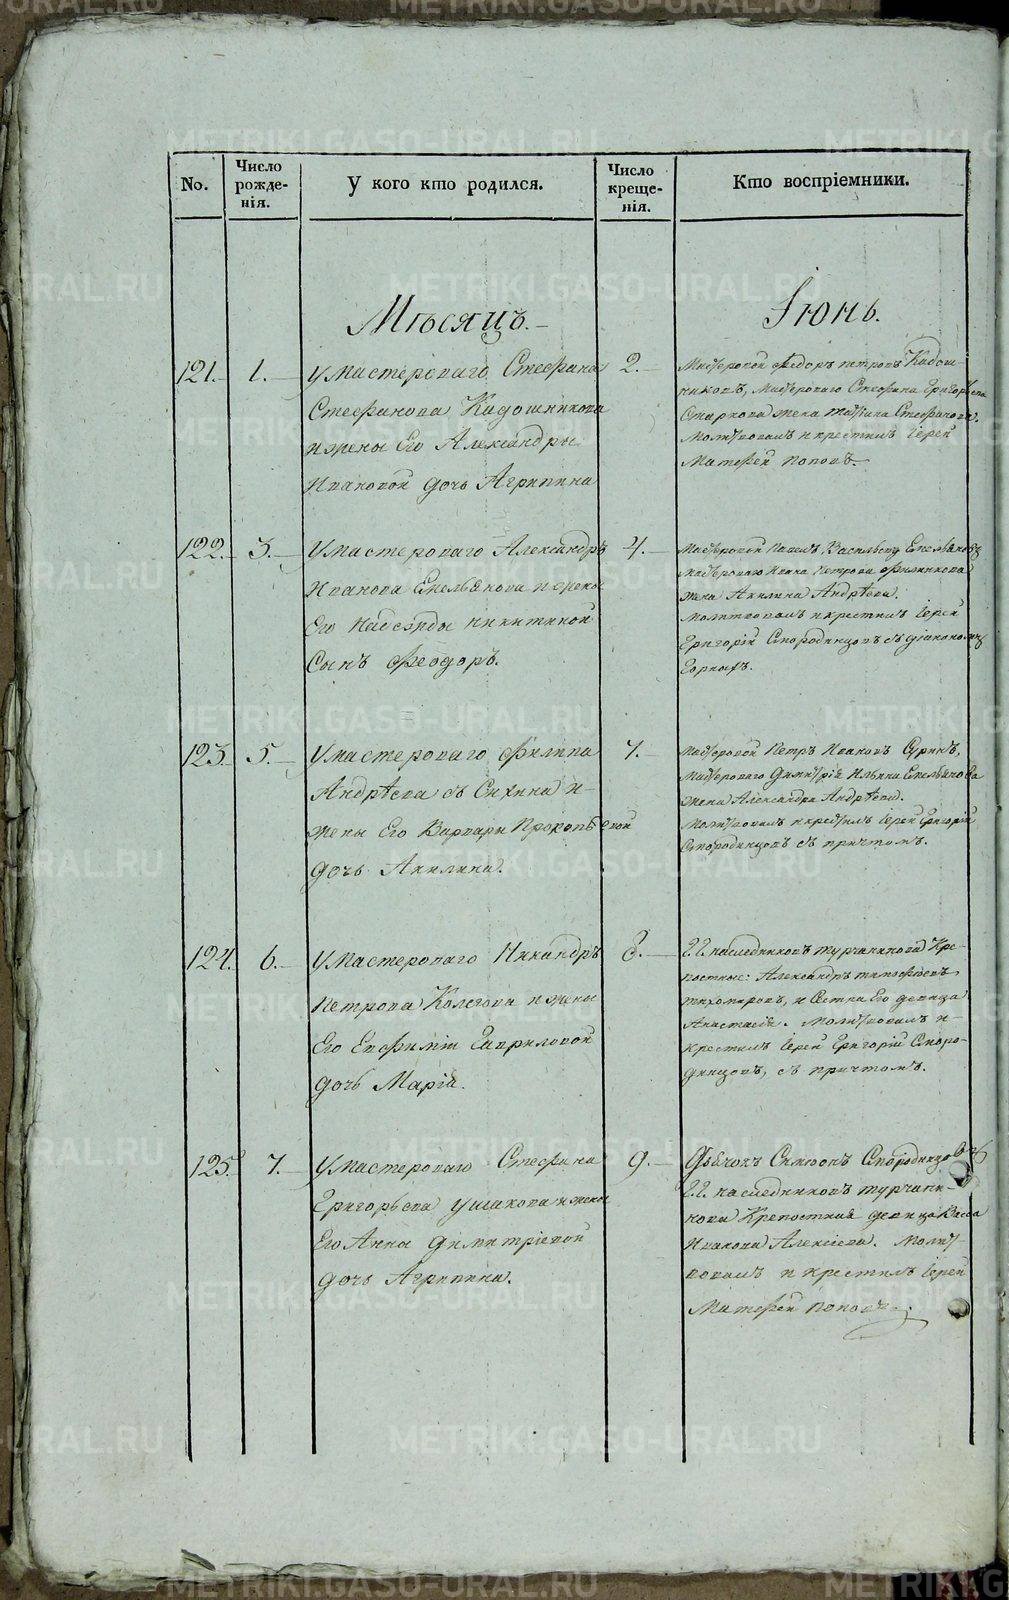 No.
Число рожде-нія.
У кого кто родился.
Число креще-нія.
Кто воспріемники.
Мѣсяцъ.
Іюнь.
121. 1.
У Мастероваго Стефана
Стефанова Кадошникова
и жены Его Александры
Ивановой дочь Агрипина
2.
Мастеровой Федоръ Петровъ Кадош-
никовъ, Мастероваго Стефана Григорьева
Старкова жена Стефанова.
Молитвовалъ и крестилъ Іерей
Матфей Поповъ.
122. 3.
У мастероваго Александръ
Иванова Емельянова и жены
Его Надежды Никитиной
Сынъ Феодоръ.
4.
Мастеровой Павелъ Васильевъ Емельяновъ
Мастероваго Ивана Петрова Филинкова
жена Акилина Андрѣева.
Молитвовалъ и крестилъ Іерей
Григорій Смородинцовъ съ діакономъ
Горныхъ.
123. 5.
У мастероваго Филипа
Андрѣева и
жены Его Варвары Прокопьевой
дочь Акилина.
7.
Мастеровой Петръ Ивановъ Суринъ,
Мастероваго Димитрія Ильина Емельянова
жена Александра Андрѣева.
Молитвовалъ и крестилъ Іерей Григорій
Смородинцовъ съ причтомъ.
124. 6.
У Мастероваго Никандръ
Петрова Колегова и жены
Его Евфиміи Гавриловой
дочь Марія.
8.
Г.г. наследниковъ Турчанинова Кре-
постные: Александръ Тимофеевъ
Тихомировъ, и Сестра Его девица
Анастасія. Молитвовалъ и
крестилъ Іерей Григорій Сморо-
динцовъ, съ причтомъ.
125. 7.
У мастероваго Стефана
Григорьева Ушакова и жены
Его Анны Димитріевой
дочь Агрипина.
9.
Дьячокъ Симеонъ Смородинцовъ
Г.г. наследниковъ Турчани-
нова Крепостная девица Васса
Иванова Алексіева. Молит-
вовалъ и крестилъ Іерей
Матфей Поповъ.
METRIKI.GASO-URAL.RU